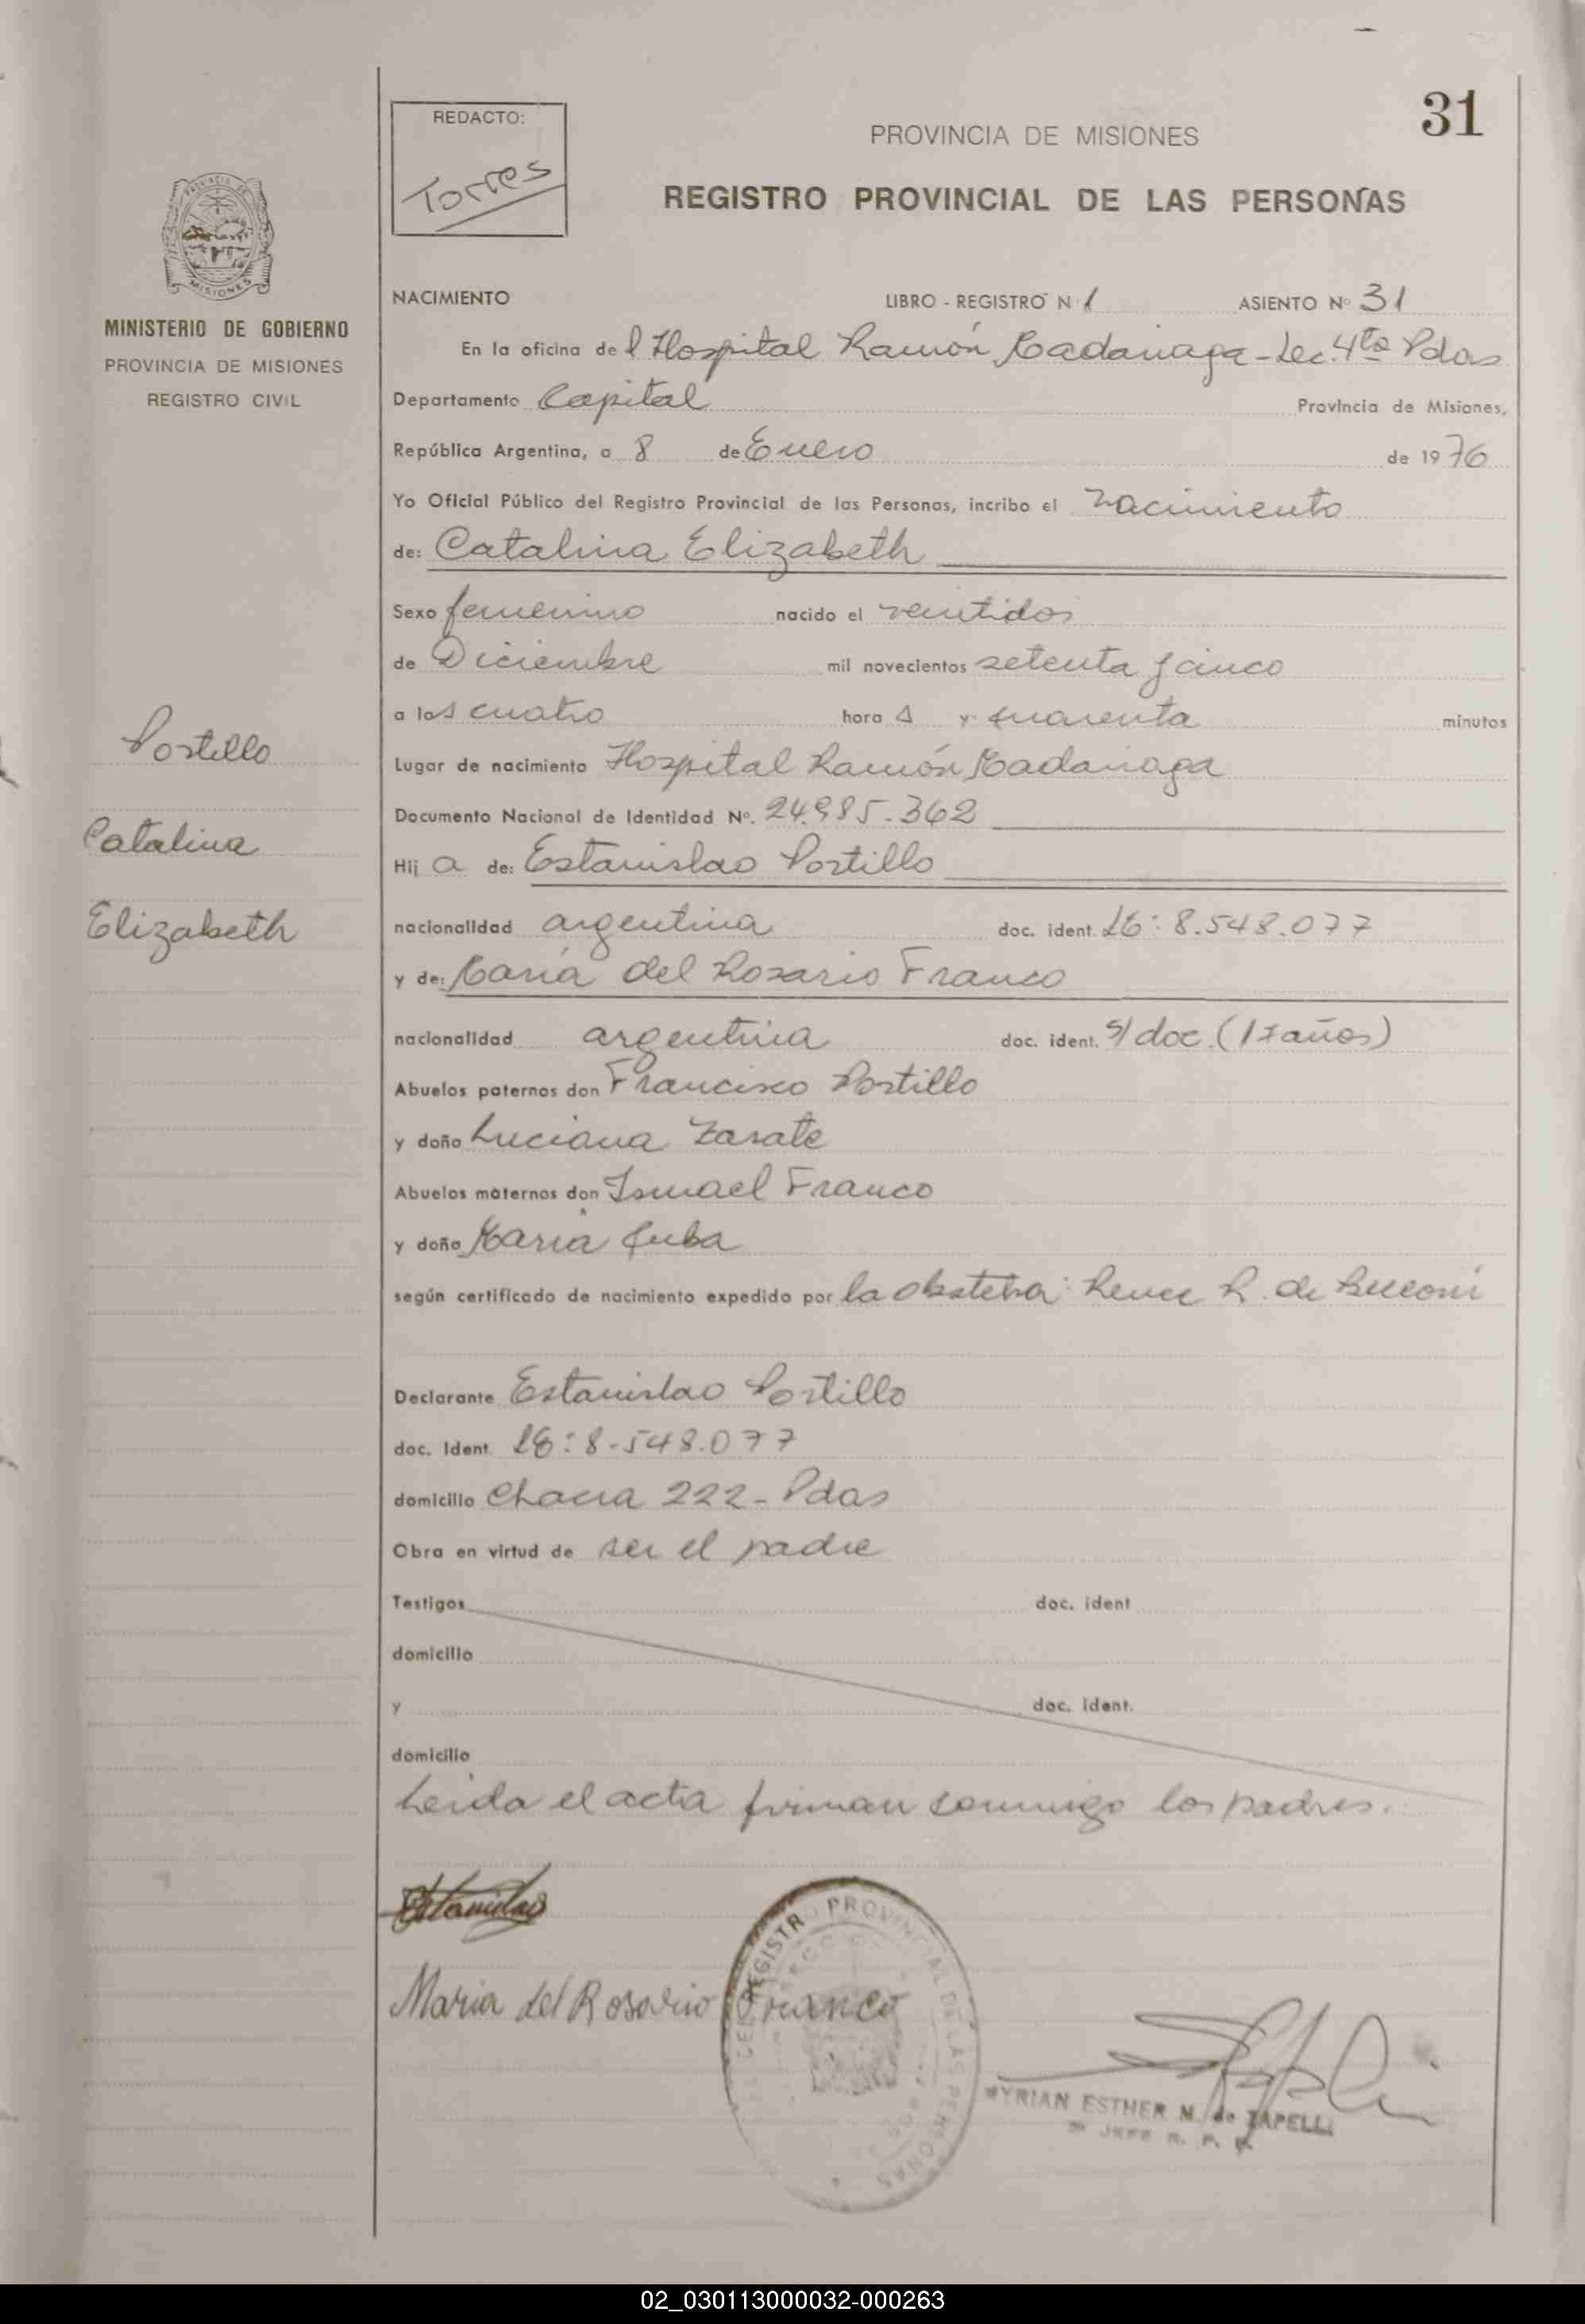 31
REDACTO:
Torres
PROVINCIA DE MISIONES
REGISTRO PROVINCIAL DE LAS PERSONAS
MINISTERIO DE GOBIERNO
PROVINCIA DE MISIONES
REGISTRO CIVIL
NACIMIENTO LIBRO - REGISTRO N 1 ASIENTO Nº 31
En la oficina del Hospital Ramón Madariaga - Sec. 4ta Pdas
Departamento Capital Provincia de Misiones,
República Argentina, a 8 de Enero de 1976
Yo Oficial Público del Registro Provincial de las Personas, incribo el nacimiento
de: Catalina Elizabeth
Sexo femenino nacido el veintidos
de Diciembre mil novecientos setenta y cinco
a las cuatro horas y cuarenta minutos
Lugar de nacimiento Hospital Ramón Madariaga
Documento Nacional de Identidad Nº. 24.985.362
Hija de: Estanislao Portillo
nacionalidad argentina doc. ident. LE: 8.548.077
y de: María del Rosario Franco
nacionalidad argentina doc. ident. s/doc. (17 años)
Abuelos paternos don Francisco Portillo
y doña Luciana Zarate
Abuelos maternos don Ismael Franco
y doña María
según certificado de nacimiento expedido por la obstetra: Renee R. de
Declarante Estanislao Portillo
doc. Ident. LE: 8.548.077
domicilio Chacra 222 - Pdas
Obra en virtud de ser el padre
Testigos doc. ident
domicilio
y doc. ident.
domicilio
Leida el acta firman conmigo los padres.
Portillo
Catalina
Elizabeth
Estanislao
Maria del Rosario Franco
DEL REGISTRO PROVINCIAL DE LAS PERSONAS
MYRIAN ESTHER M. de ZAPELLI
JEFE R. P. P.
02_030113000032-000263